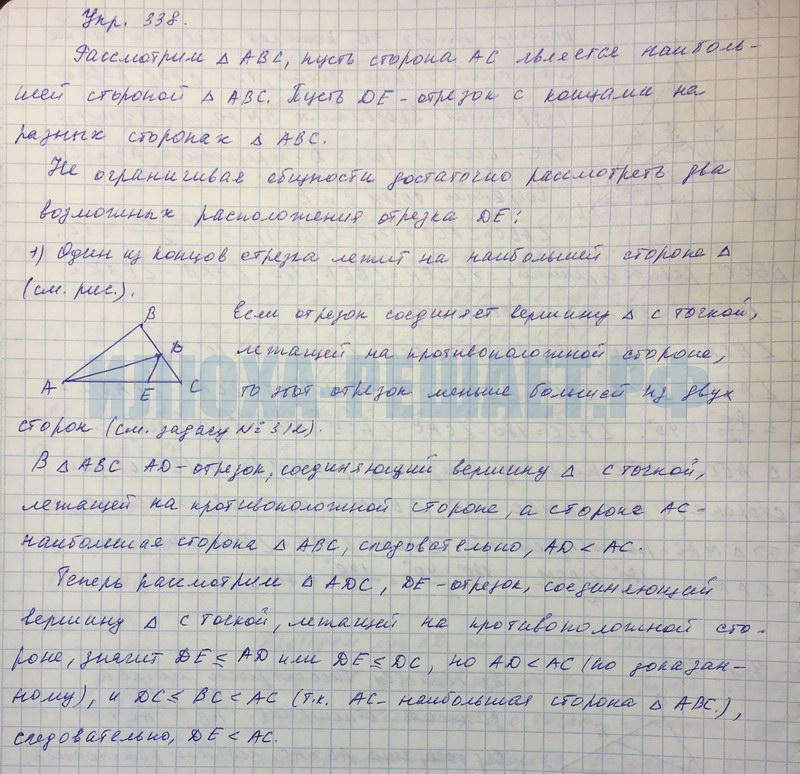 Упр. 338.
Рассмотрим △ ABC, пусть сторона AC является наиболь-
шей стороной △ ABC. Пусть DE - отрезок с концами на
разных сторонах △ ABC.
Не ограничивая общности достаточно рассмотреть два
возможных расположения отрезка DE:
1) Один из концов отрезка лежит на наибольшей стороне △
(см. рис.).
B
D
A
E
C
Если отрезок соединяет вершину △ с точкой,
лежащей на противоположной стороне,
то этот отрезок меньше большей из двух
сторон (см. задачу № 312).
ИЛЮХА-РЕШАЕТ.РФ
В △ ABC AD - отрезок, соединяющий вершину △ с точкой,
лежащей на противоположной стороне, а сторона AC -
наибольшая сторона △ ABC, следовательно, AD < AC.
Теперь рассмотрим △ ADC, DE - отрезок, соединяющий
вершину △ с точкой, лежащей на противоположной сто-
роне, значит DE ≤ AD или DE ≤ DC, но AD < AC (по доказан-
ному), и DC ≤ BC < AC (т.к. AC - наибольшая сторона △ ABC.),
следовательно, DE < AC.